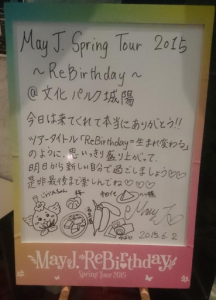 May J. Spring Tour 2015
~ReBirthday~
@文化パルク城陽
今日は来てくれて本当にありがとう!!
ツアータイトル「ReBirthday=生まれ変わる」
のように、思いっきり盛り上がって、
明日から新しい自分で過ごしましょう♡♡
是非最後まで楽しんでね♡♡♡
May J.
2015.6.2
May J. ReBirthday
Spring Tour 2015